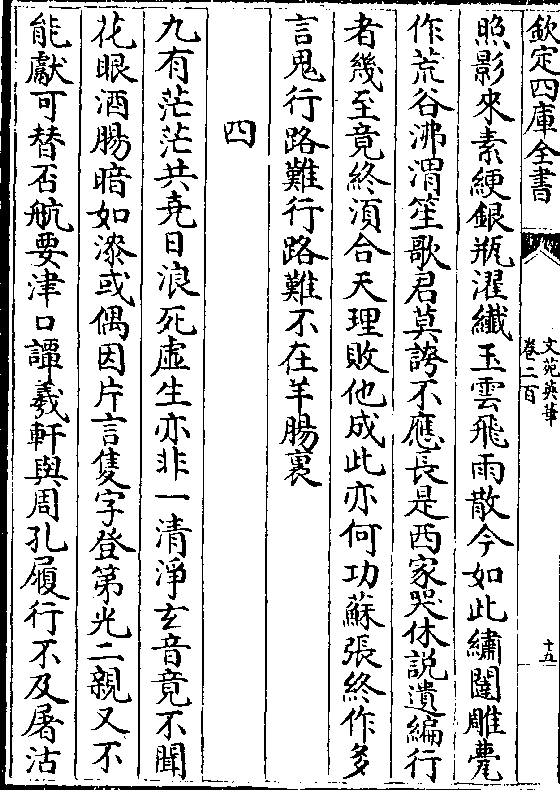 欽定四庫全書
文苑英華
卷二百
十五
照影來素綆銀瓶濯纖玉雲飛雨散今如此繡闥雕甍
作荒谷沸渭笙歌君莫誇不應長是西家哭休説遺編行
者幾至竟終須合天理敗他成此亦何功蘇張終作多
言鬼行路難行路難不在羊腸裏
四
九有茫茫共堯日浪死虛生亦非一清淨玄音竟不聞
花眼酒腸暗如漆或偶因片言隻字登第光二親又不
能獻可替否航要津口譚羲軒與周孔履行不及屠沽